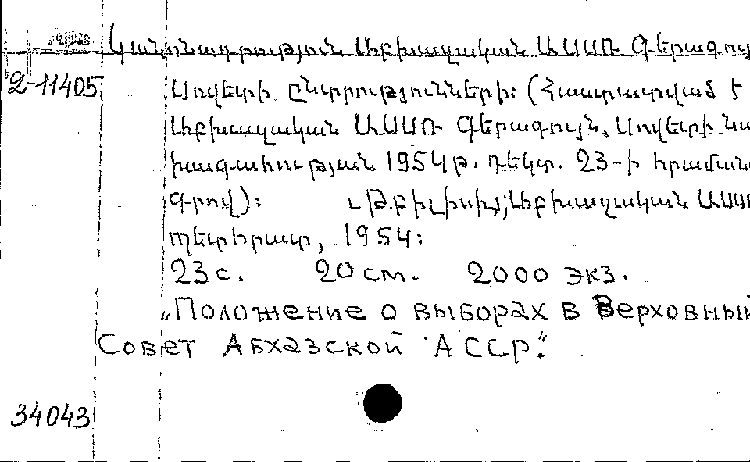 Կանոնադրություն Աբխազական ԱՍՍՌ Գերագույ
2-11405 Սովետի ընտրությունների: (Հաստատված է
Աբխազական ԱՍՍՌ Գերագույն Սովետի նա
խագահության 1954թ. դեկտ. 23-ի հրաման
գրով): Թբիլիսի, Աբխազական ԱՍՍ
պետհրատ, 1954:
23 с. 20 см. 2000 экз.
„Положение о выборах в Верховный
Совет Абхазской АССР."
34043